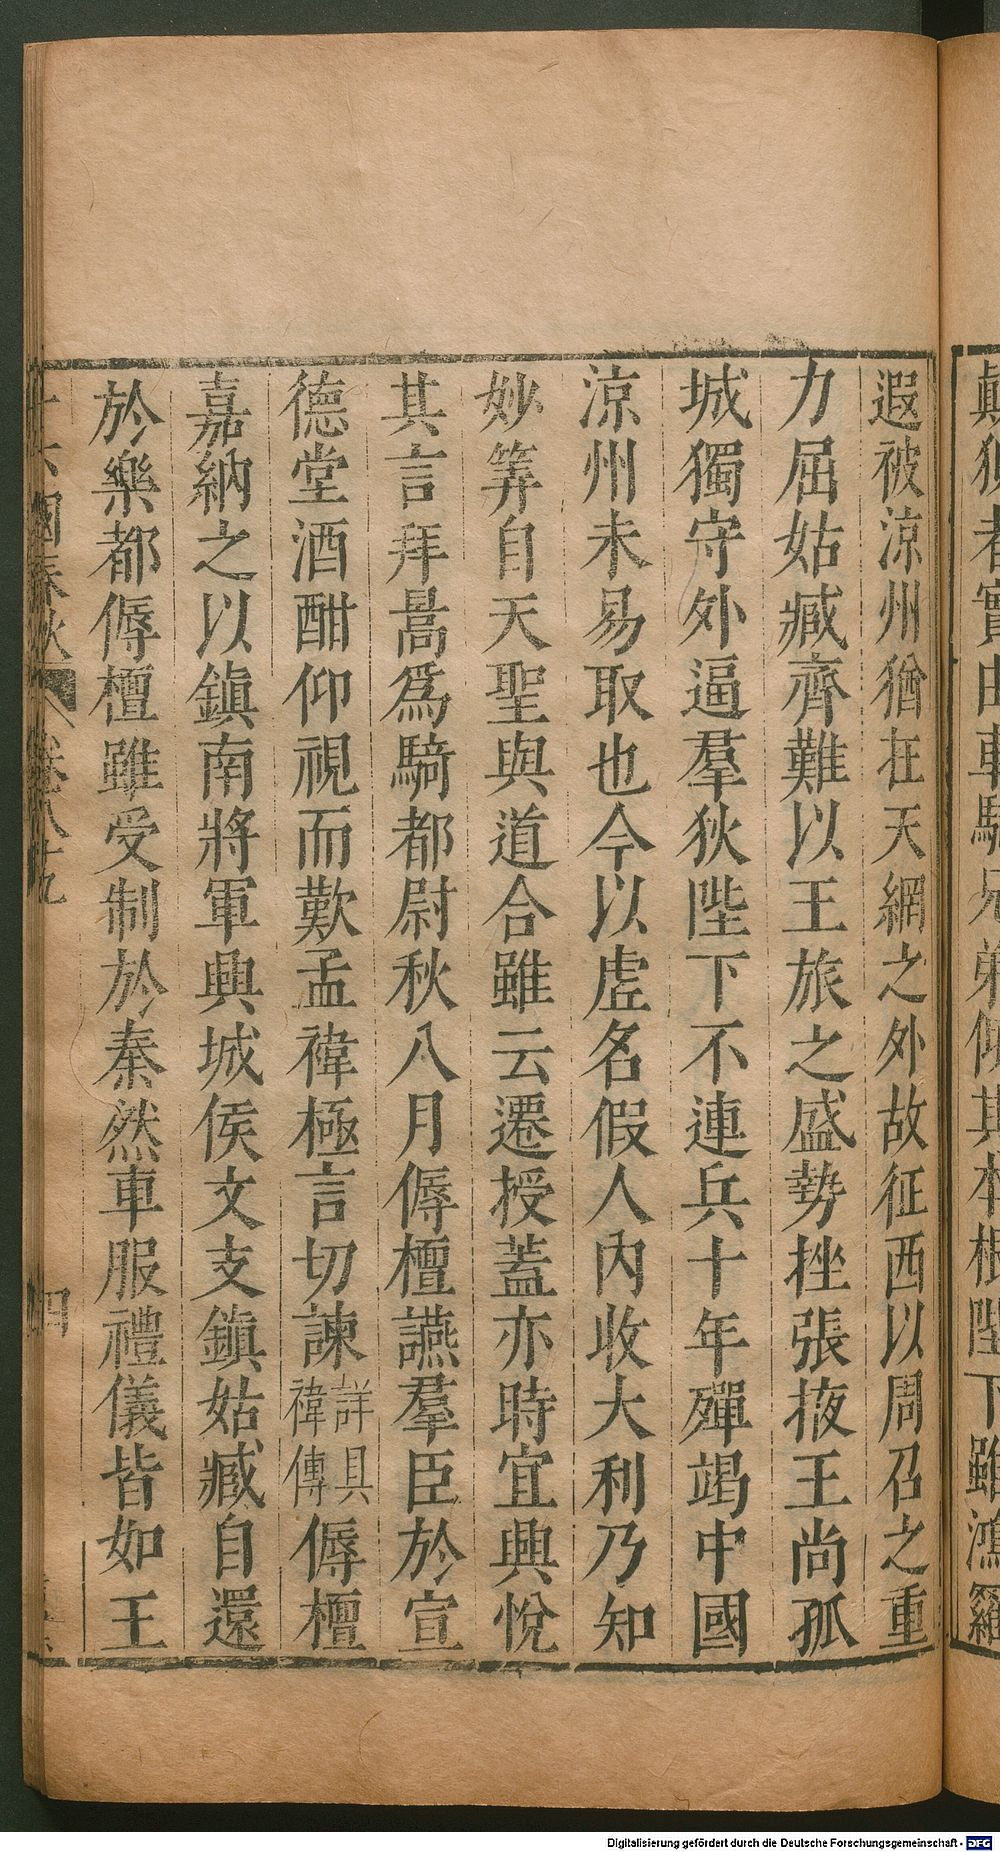 顛狽者實由車騎兄弟傾其本根陛下雖鴻羅
遐被涼州猶在天網之外故征西以周召之重
力屈姑臧齊難以王旅之盛勢挫張掖王尚孤
城獨守外逼羣狄陛下不連兵十年殫竭中國
涼州未易取也今以虛名假人內收大利乃知
妙筭自天聖與道合雖云遷授蓋亦時宜興悅
其言拜暠爲騎都尉秋八月傉檀讌羣臣於宣
德堂酒酣仰視而歎孟禕極言切諫詳具禕傳傉檀
嘉納之以鎭南將軍興城侯文支鎭姑臧自還
於樂都傉檀雖受制於秦然車服禮儀皆如王
十六國春秋 卷八十九 四
Digitalisierung gefördert durch die Deutsche Forschungsgemeinschaft - DFG